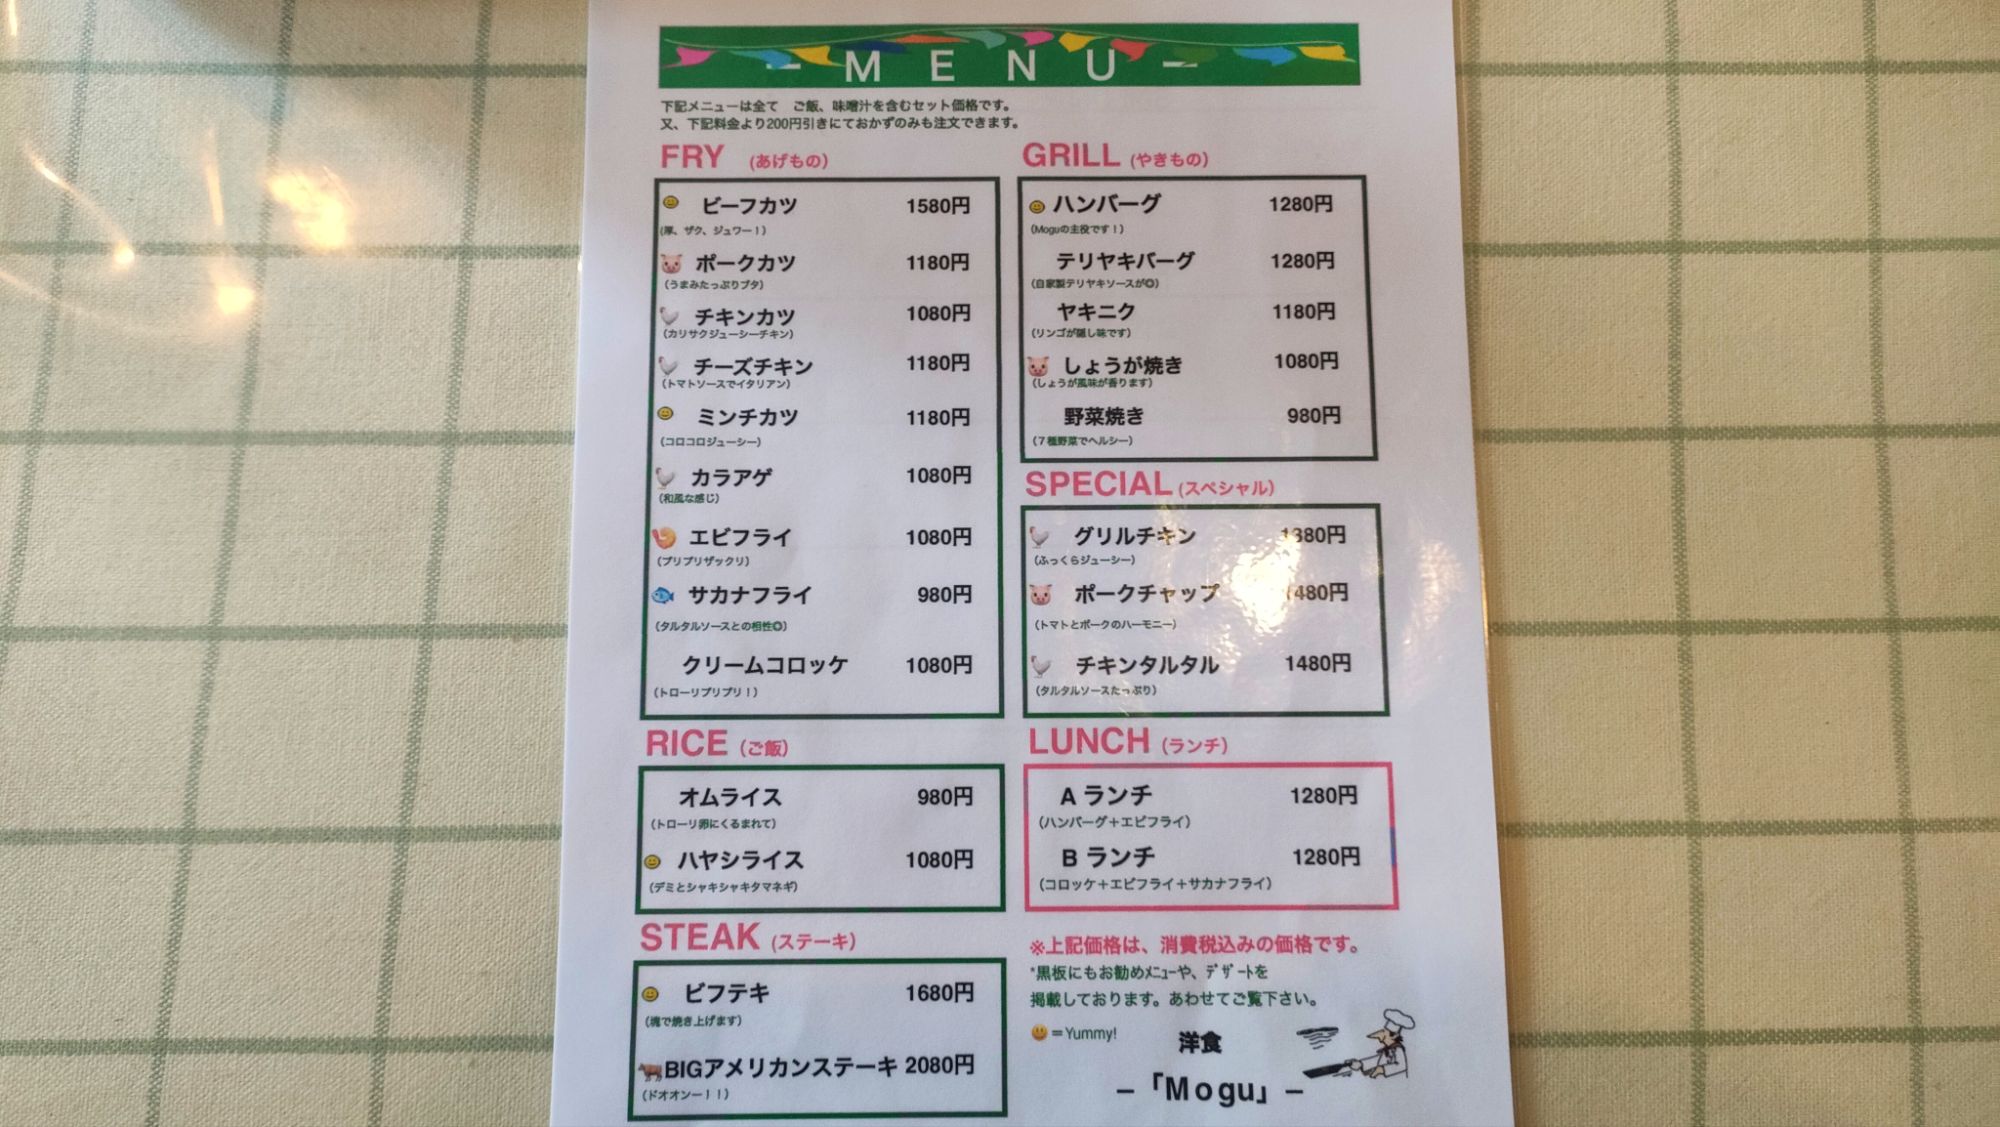 – M E N U –
下記メニューは全て　ご飯、味噌汁を含むセット価格です。
又、下記料金より200円引きにておかずのみも注文できます。
FRY (あげもの)
ビーフカツ 1580円
(厚、ザク、ジュワー！)
ポークカツ 1180円
(うまみたっぷりブタ)
チキンカツ 1080円
(カリサクジューシーチキン)
チーズチキン 1180円
(トマトソースでイタリアン)
ミンチカツ 1180円
(コロコロジューシー)
カラアゲ 1080円
(和風な感じ)
エビフライ 1080円
(プリプリザックリ)
サカナフライ 980円
(タルタルソースとの相性◎)
クリームコロッケ 1080円
(トローリプリプリ！)
RICE (ご飯)
オムライス 980円
(トローリ卵にくるまれて)
ハヤシライス 1080円
(デミとシャキシャキタマネギ)
STEAK (ステーキ)
ビフテキ 1680円
(塊で焼き上げます)
BIGアメリカンステーキ 2080円
(ドオオンー！！)
GRILL (やきもの)
ハンバーグ 1280円
(Moguの主役です！)
テリヤキバーグ 1280円
(自家製テリヤキソースが◎)
ヤキニク 1180円
(リンゴが隠し味です)
しょうが焼き 1080円
(しょうが風味が香ります)
野菜焼き 980円
(７種野菜でヘルシー)
SPECIAL (スペシャル)
グリルチキン 1380円
(ふっくらジューシー)
ポークチャップ 1480円
(トマトとポークのハーモニー)
チキンタルタル 1480円
(タルタルソースたっぷり)
LUNCH (ランチ)
A ランチ 1280円
(ハンバーグ＋エビフライ)
B ランチ 1280円
(コロッケ＋エビフライ＋サカナフライ)
※上記価格は、消費税込みの価格です。
*黒板にもお勧めﾒﾆｭｰや、ﾃﾞｻﾞｰﾄを
掲載しております。あわせてご覧下さい。
＝Yummy!
洋食
–「Mogu」–